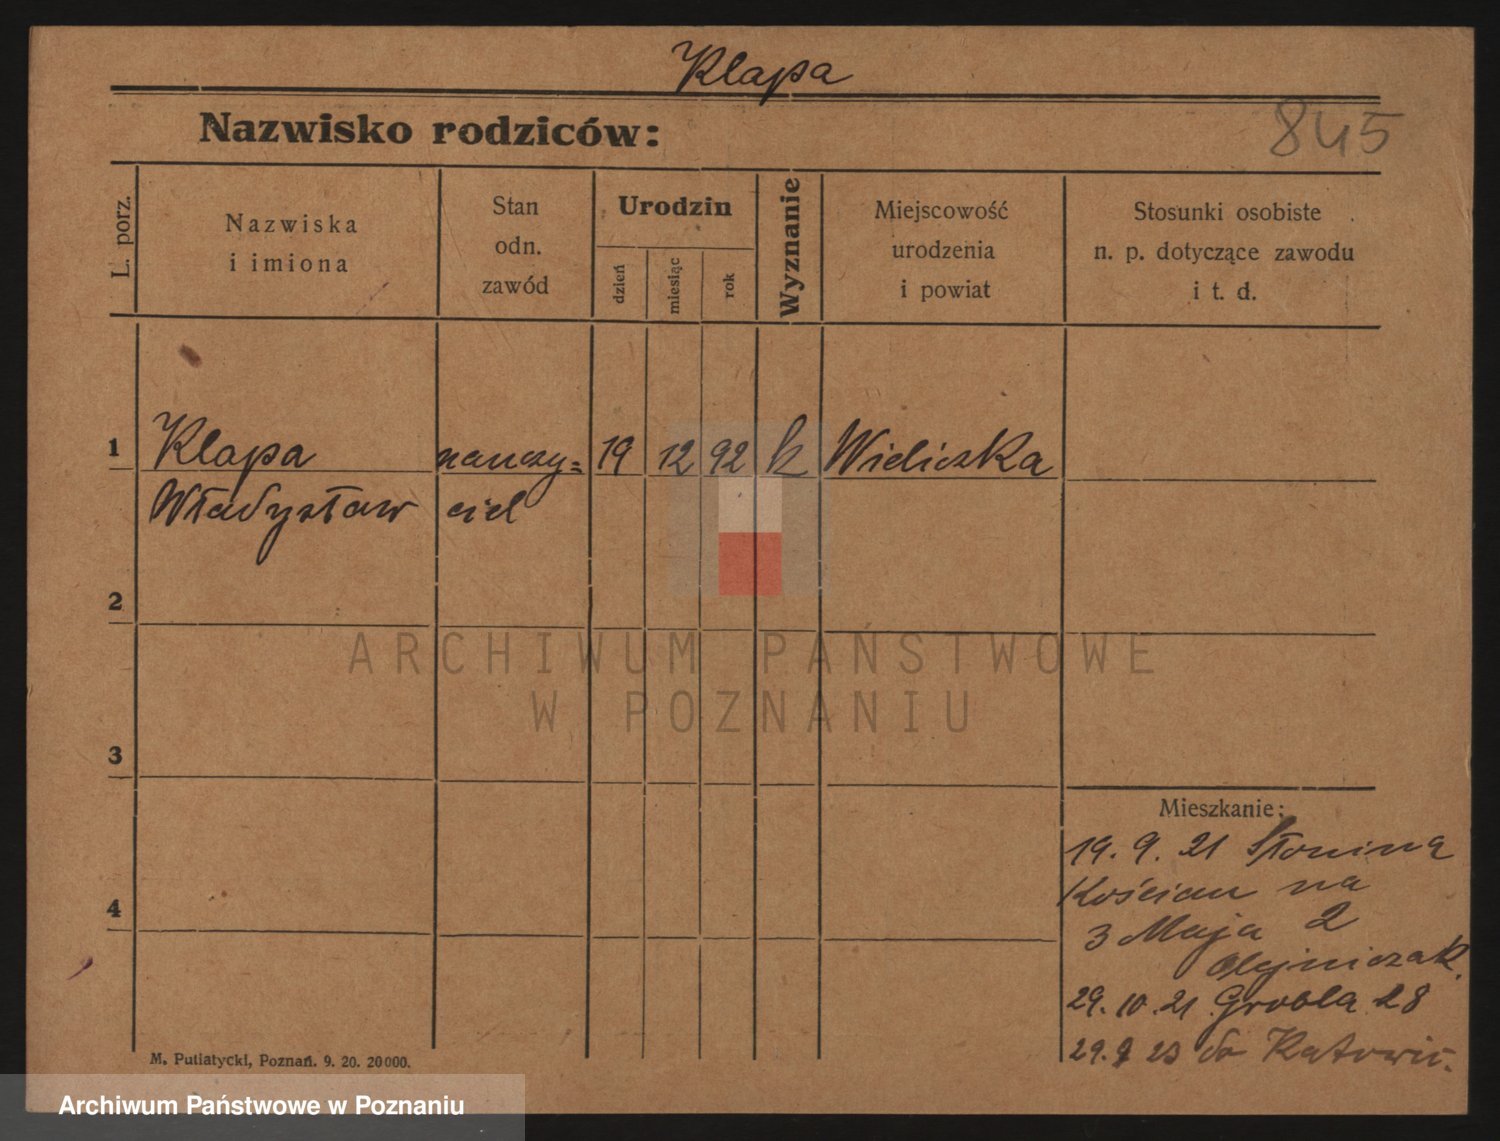 Klapa
845
Nazwisko rodziców:
L. porz.
Nazwiska
i imiona
Stan
odn.
zawód
Urodzin
dzień
miesiąc
rok
Wyznanie
Miejscowość
urodzenia
i powiat
Stosunki osobiste
n. p. dotyczące zawodu
i t. d.
1 Klapa nauczy= 19 12 92 k Wieliczka
Władysław ciel
2
ARCHIWUM PAŃSTWOWE
W POZNANIU
3
Mieszkanie:
19. 9. 21 Słonina
Kościan na
4
3 Maja 2
Olejniczak.
29. 10. 21 Grobla 28
29. 9 23 do Katowic.
M. Putiatycki, Poznań. 9. 20. 20000.
Archiwum Państwowe w Poznaniu